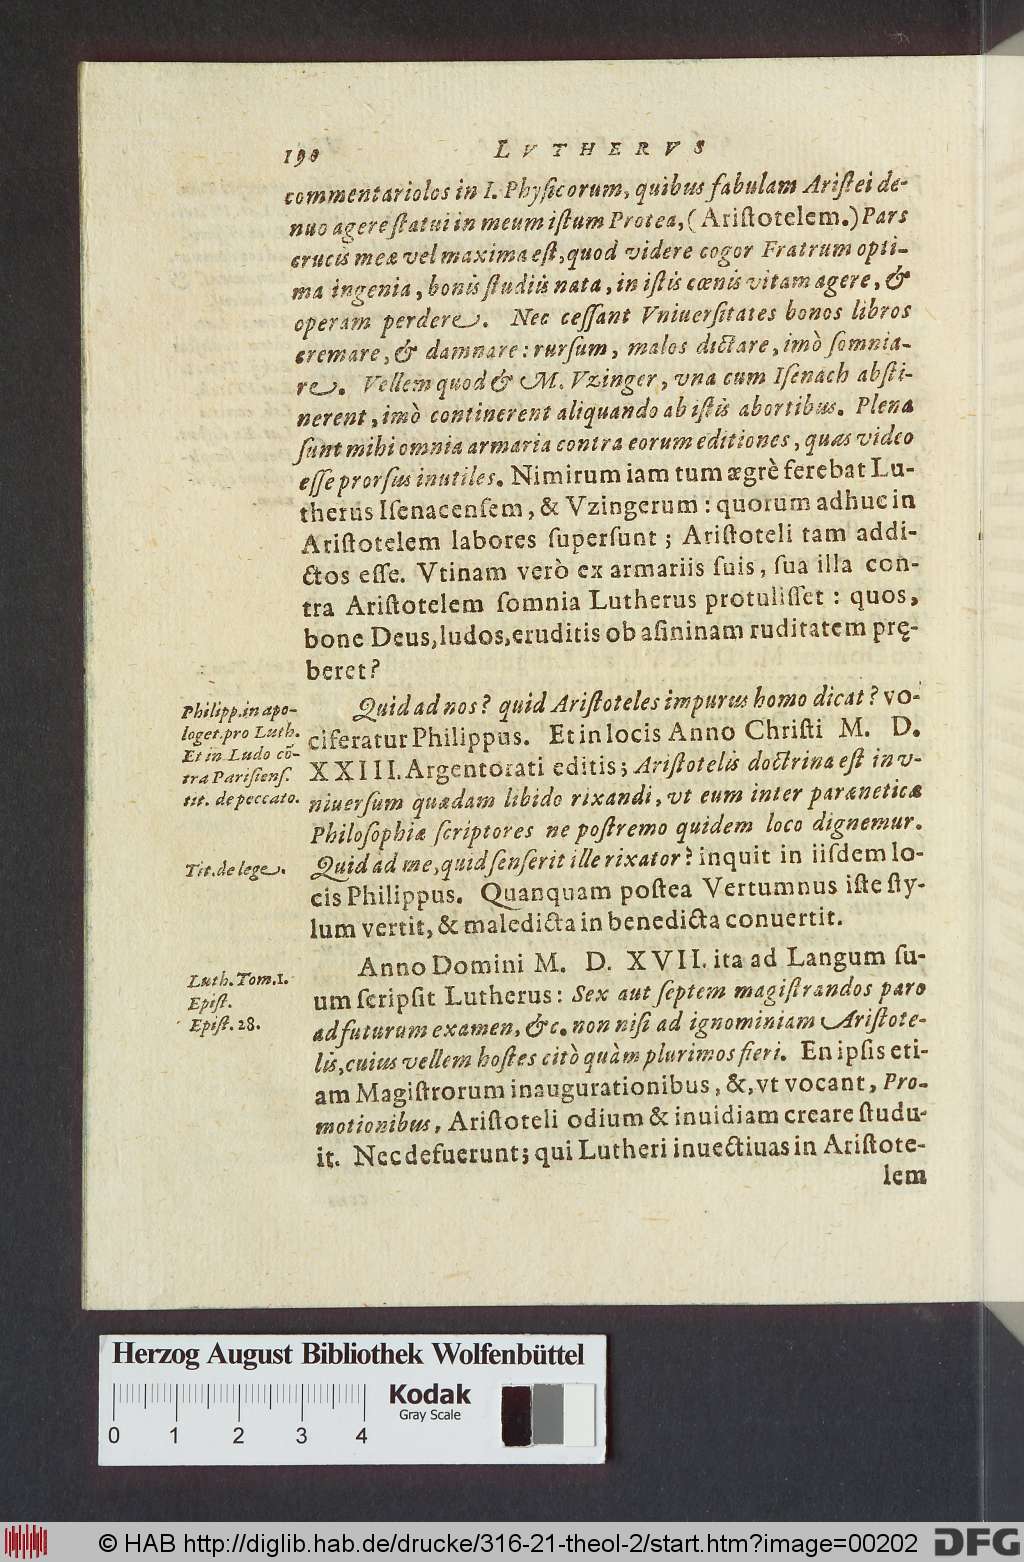 190 LVTHERVS
commentariolos in I. Physicorum, quibus fabulam Aristei de-
nuo agere statui in meum istum Protea, (Aristotelem.) Pars
crucis meæ vel maxima est, quod videre cogor Fratrum opti-
ma ingenia, bonis studiis nata, in istis cœnis vitam agere, &
operam perdere. Nec cessant Vniuersitates bonos libros
cremare, & damnare: rursum, malos dictare, imò somnia-
re. Vellem quod & M. Vzinger, vna cum Isenach absti-
nerent, imò continerent aliquando ab istis abortibus. Plena
sunt mihi omnia armaria contra eorum editiones, quas video
esse prorsus inutiles. Nimirum iam tum ægrè ferebat Lu-
therus Isenacensem, & Vzingerum: quorum adhuc in
Aristotelem labores supersunt; Aristoteli tam addi-
ctos esse. Vtinam verò ex armariis suis, sua illa con-
tra Aristotelem somnia Lutherus protulisset: quos,
bone Deus, ludos, eruditis ob asininam ruditatem prę-
beret?
Quid ad nos? quid Aristoteles impurus homo dicat? vo-
ciferatur Philippus. Et in locis Anno Christi M. D.
XXIII. Argentorati editis; Aristotelis doctrina est in v-
niuersum quædam libido rixandi, vt eum inter parænetica
Philosophiæ scriptores ne postremo quidem loco dignemur.
Quid ad me, quid senserit ille rixator? inquit in iisdem lo-
cis Philippus. Quanquam postea Vertumnus iste sty-
lum vertit, & maledicta in benedicta conuertit.
Philipp. in apo-
loget. pro Luth.
Et in Ludo cō-
tra Parisiens.
tit. de peccato.
Tit. de lege.
Anno Domini M. D. XVII. ita ad Langum su-
um scripsit Lutherus: Sex aut septem magistrandos paro
ad futurum examen, &c. non nisi ad ignominiam Aristote-
lis, cuius vellem hostes citò quàm plurimos fieri. En ipsis eti-
am Magistrorum inaugurationibus, &, vt vocant, Pro-
motionibus, Aristoteli odium & inuidiam creare studu-
it. Nec defuerunt; qui Lutheri inuectiuas in Aristote-
lem
Luth. Tom. 1.
Epist.
Epist. 28.
Herzog August Bibliothek Wolfenbüttel
Kodak
Gray Scale
0 1 2 3 4
© HAB http://diglib.hab.de/drucke/316-21-theol-2/start.htm?image=00202 DFG